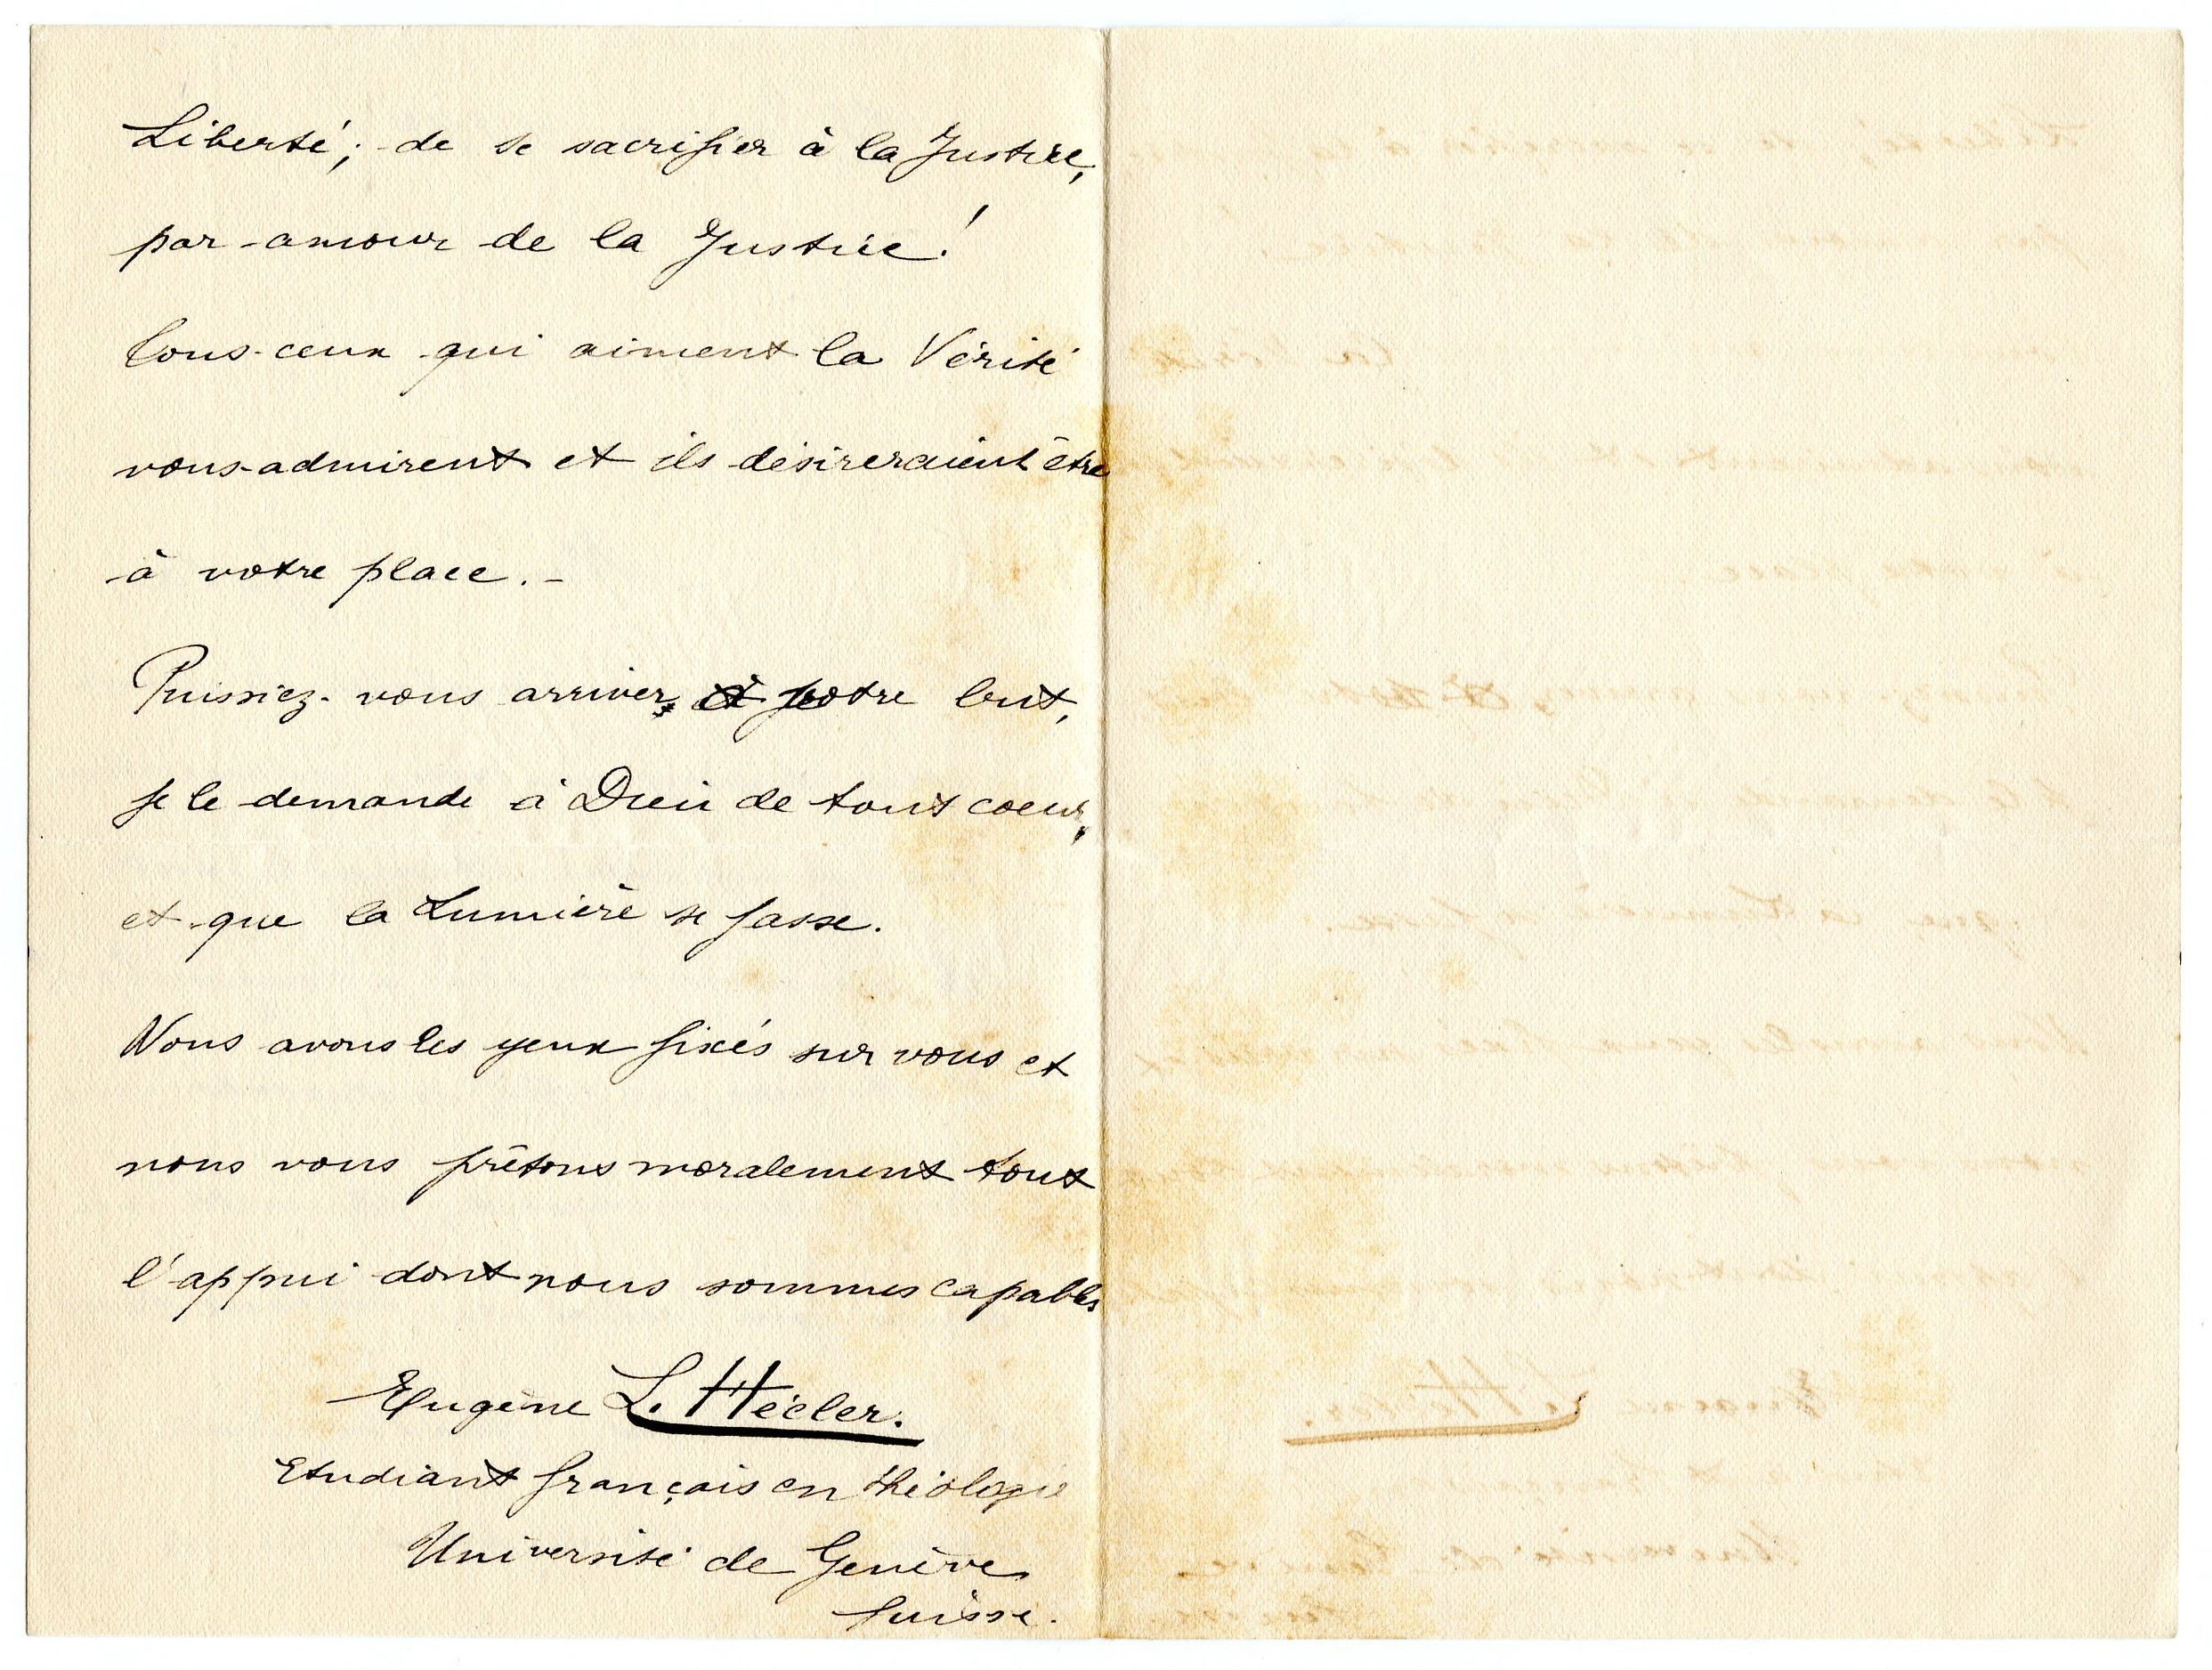 Liberté; de se sacrifier à la Justice,
par amour de la Justice!
Tous ceux qui aiment la Vérité
vous admirent et ils désireraient être
à votre place. -
Puissiez-vous arriver, à votre but,
je le demande à Dieu de tout coeur,
et que la Lumière se fasse.
Nous avons les yeux fixés sur vous et
nous vous prêtons moralement tout
l'appui dont nous sommes capables
Eugène L. Hécler.
Etudiant français en théologie
Université de Genève
Suisse.